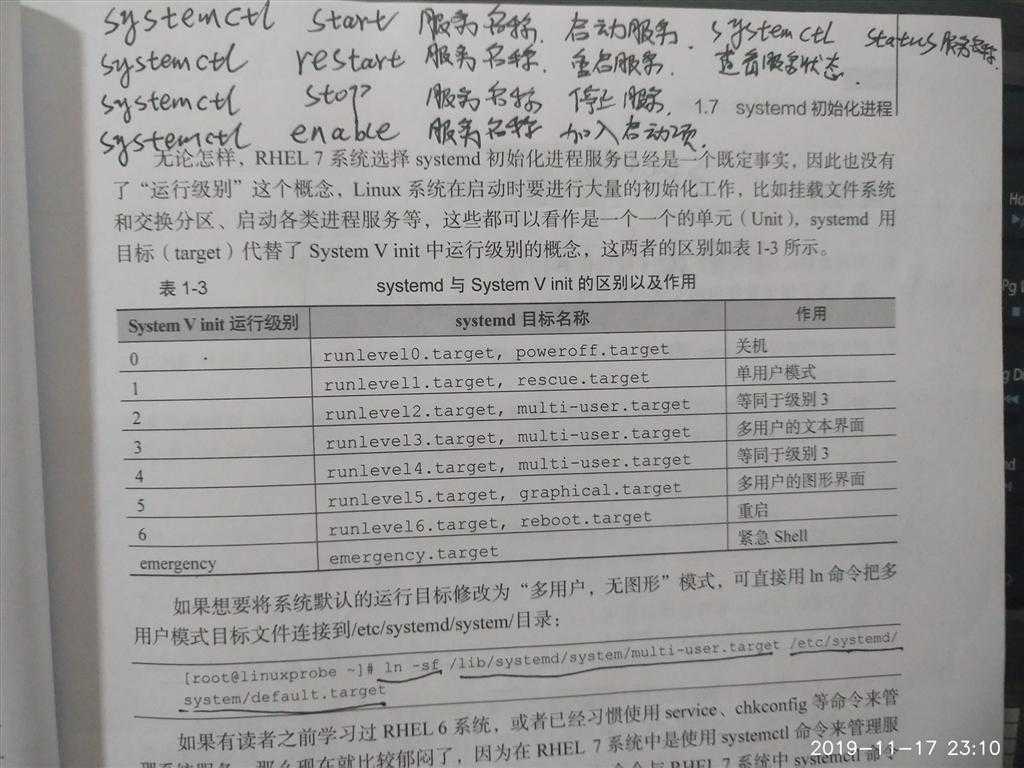 systemctl start 服务名称. 启动服务. systemctl status 服务名称.
systemctl restart 服务名称. 重启服务. 查看服务状态.
systemctl stop 服务名称 停止服务.
1.7 systemd 初始化进程
systemctl enable 服务名称 加入启动项.
无论怎样，RHEL 7 系统选择 systemd 初始化进程服务已经是一个既定事实，因此也没有
了“运行级别”这个概念，Linux 系统在启动时要进行大量的初始化工作，比如挂载文件系统
和交换分区、启动各类进程服务等，这些都可以看作是一个一个的单元（Unit），systemd 用
目标（target）代替了 System V init 中运行级别的概念，这两者的区别如表 1-3 所示。
表 1-3 systemd 与 System V init 的区别以及作用
System V init 运行级别 systemd 目标名称 作用
0 runlevel0.target, poweroff.target 关机
1 runlevel1.target, rescue.target 单用户模式
2 runlevel2.target, multi-user.target 等同于级别 3
3 runlevel3.target, multi-user.target 多用户的文本界面
4 runlevel4.target, multi-user.target 等同于级别 3
5 runlevel5.target, graphical.target 多用户的图形界面
6 runlevel6.target, reboot.target 重启
emergency emergency.target 紧急 Shell
如果想要将系统默认的运行目标修改为“多用户，无图形”模式，可直接用 ln 命令把多
用户模式目标文件连接到/etc/systemd/system/目录：
[root@linuxprobe ~]# ln -sf /lib/systemd/system/multi-user.target /etc/systemd/
system/default.target
如果有读者之前学习过 RHEL 6 系统，或者已经习惯使用 service、chkconfig 等命令来管
理系统服务，那么现在就比较郁闷了，因为在 RHEL 7 系统中是使用 systemctl 命令来管理服
命令与 RHEL 7 系统中 systemctl 命令
2019-11-17 23:10